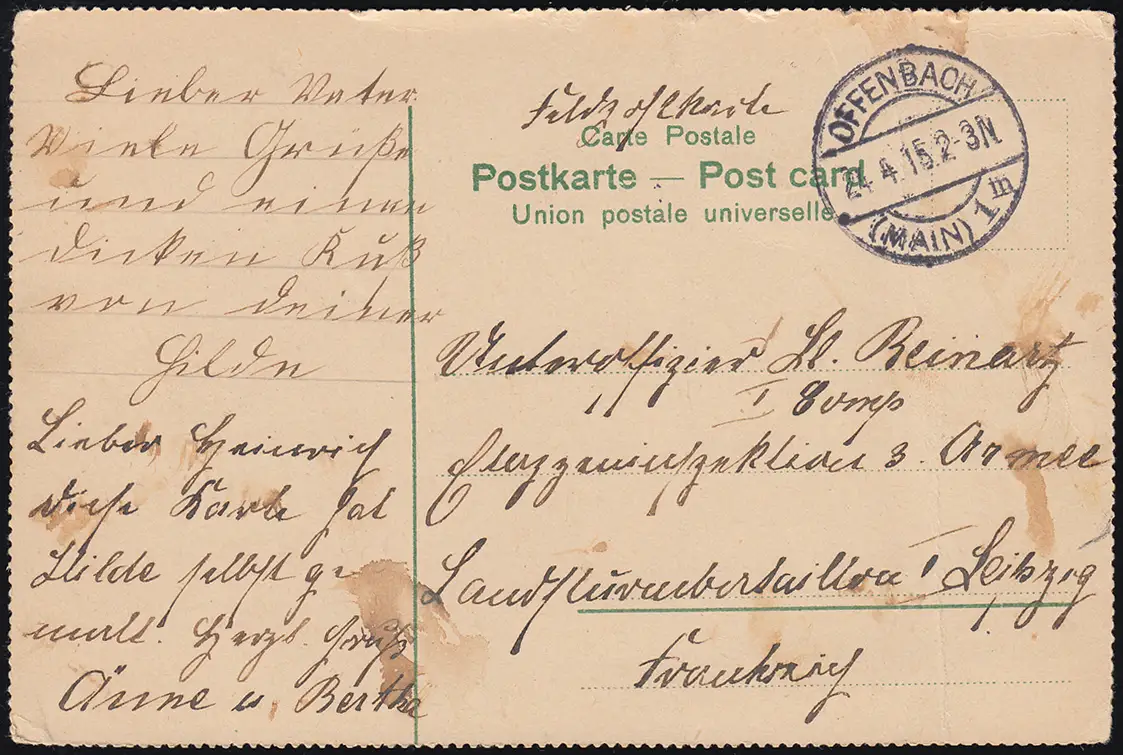 Lieber Vater
Viele Grüße
und einen
dicken Kuß
von deiner
Hilde
Lieber Heinrich
diese Karte hat
Hilde selbst ge-
malt. Herzl. Gruß
Änne u. Bertha
Feldpostkarte
Carte Postale
Postkarte — Post card
Union postale universelle
OFFENBACH
24.4.15.2-3N
(MAIN) 1 m
Unteroffizier H. Reinartz
I Comp
Etappeninspektion 3. Armee
Landsturmbataillon I Leipzig
Frankreich